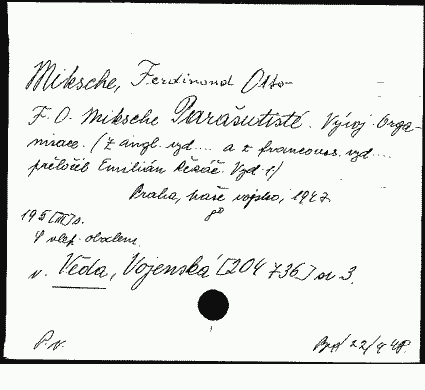 Miksche, Ferdinand Otto
F. O. Miksche Parašutisté. Vývoj. Orga-
nisace. (Z angl. vyd.... a z francouss. vyd....
přeložil Emilián Řezáč. Vyd. 1.)
Praha, Naše vojsko, 1947.
8°
195 [III] s.
V
v. Věda, Vojenská [204 736] sv. 3.
P. v. 22/9 48.